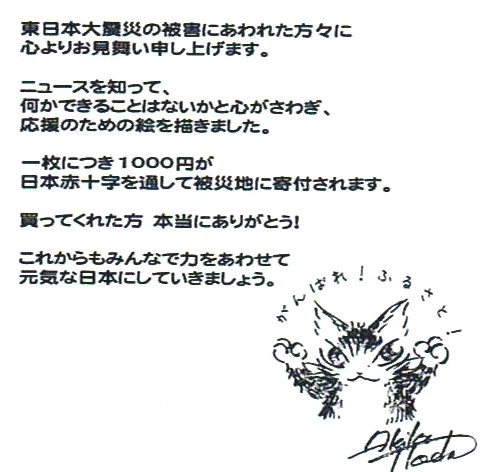 東日本大震災の被害にあわれた方々に
心よりお見舞い申し上げます。
ニュースを知って、
何かできることはないかと心がさわぎ、
応援のための絵を描きました。
一枚につき1000円が
日本赤十字を通して被災地に寄付されます。
買ってくれた方 本当にありがとう!
これからもみんなで力をあわせて
元気な日本にしていきましょう。
がんばれ!ふるさと!